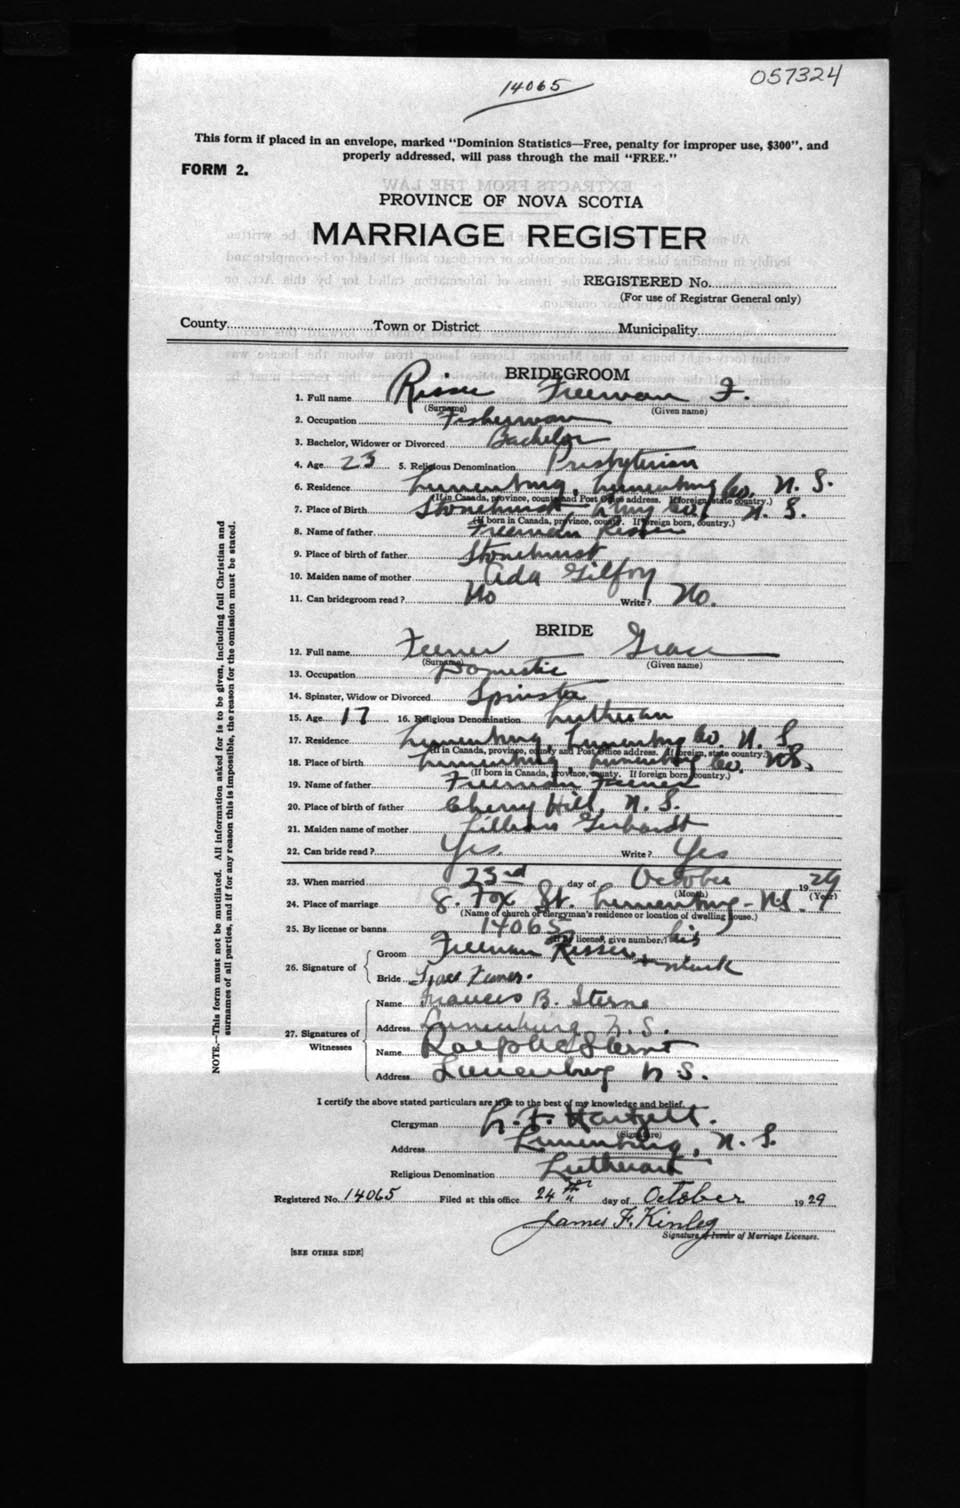 057324
14065
This form if placed in an envelope, marked "Dominion Statistics—Free, penalty for improper use, $300", and
properly addressed, will pass through the mail "FREE."
FORM 2.
PROVINCE OF NOVA SCOTIA
MARRIAGE REGISTER
REGISTERED No.
(For use of Registrar General only)
County Town or District Municipality
BRIDEGROOM
1. Full name Risser Freeman F.
(Surname) (Given name)
2. Occupation Fisherman
3. Bachelor, Widower or Divorced Bachelor
4. Age 23 5. Religious Denomination Presbyterian
6. Residence Lunenburg, Lunenburg Co. N. S.
(If in Canada, province, county and Post Office address. If foreign, state country.)
7. Place of Birth Stonehurst Co. N. S.
(If born in Canada, province, county. If foreign born, country.)
8. Name of father Freeman Risser
9. Place of birth of father Stonehurst
10. Maiden name of mother Ada Gilfoy
11. Can bridegroom read? No Write? No.
BRIDE
12. Full name Feener Grace
(Surname) (Given name)
13. Occupation Domestic
14. Spinster, Widow or Divorced Spinster
15. Age 17 16. Religious Denomination Lutheran
17. Residence Lunenburg, Lunenburg Co. N. S
(If in Canada, province, county and Post Office address. If foreign, state country.)
18. Place of birth Lunenburg, Lunenburg Co. N.S.
(If born in Canada, province, county. If foreign born, country.)
19. Name of father Freeman Feener
20. Place of birth of father Cherry Hill, N. S.
21. Maiden name of mother Lillian Gerhardt
22. Can bride read? Yes. Write? Yes
23. When married 23rd day of October 1929
(Month) (Year)
24. Place of marriage 8. Fox St. Lunenburg - N.S.
(Name of church or clergyman's residence or location of dwelling house.)
25. By license or banns 14065
(If by license, give number.) his
26. Signature of Groom Freeman Risser + mark
Bride Grace Feener.
27. Signatures of Witnesses
Name Frances B. Sterne
Address Lunenburg N. S.
Name Ralph
Address Lunenburg N S.
I certify the above stated particulars are true to the best of my knowledge and belief.
Clergyman
(Signature)
Address Lunenburg, N. S.
Religious Denomination Lutheran
Registered No. 14065 Filed at this office 24th day of October 1929
James F. Kinley
Signature of Issuer of Marriage Licenses.
[SEE OTHER SIDE]
NOTE.—This form must not be mutilated. All information asked for is to be given, including full Christian and
surnames of all parties, and if for any reason this is impossible, the reason for the omission must be stated.